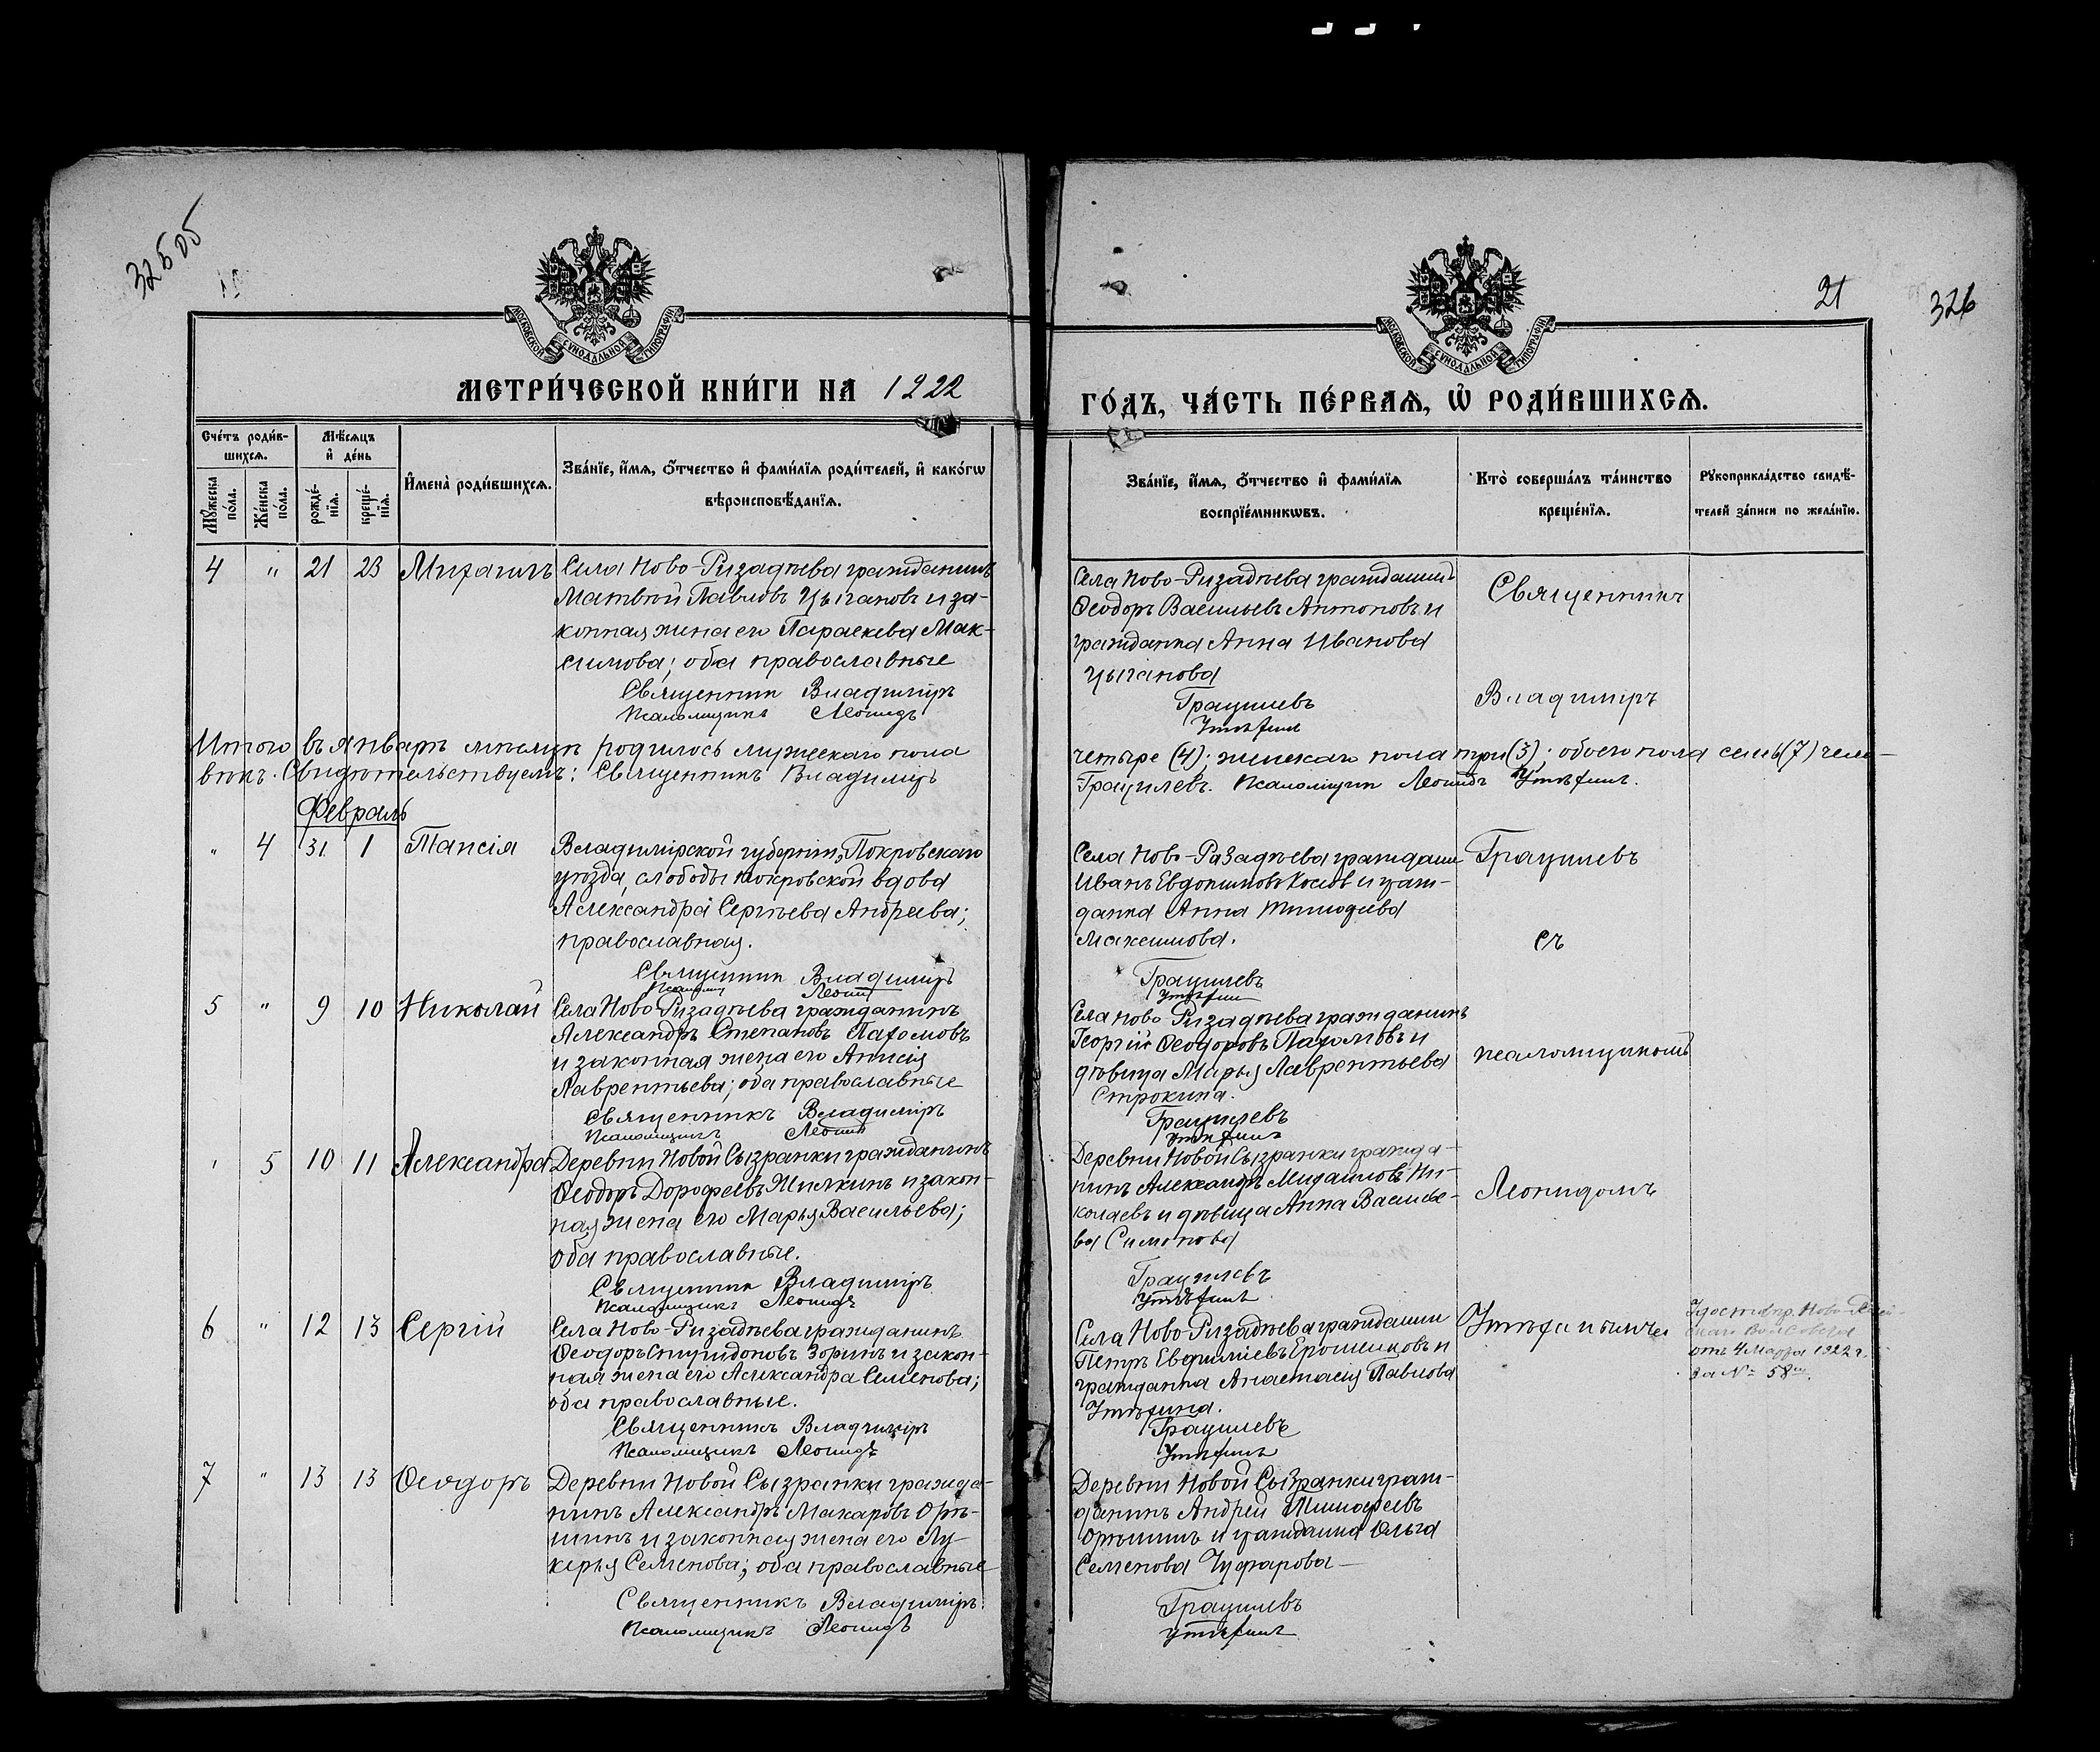 325об
21
326
МОСКОВСКОЙ СѴНОДАЛЬНОЙ ТИПОГРАФІИ
МОСКОВСКОЙ СѴНОДАЛЬНОЙ ТИПОГРАФІИ
МЕТРИ́ЧЕСКОЙ КНИ́ГИ НА 1922
ГО́ДЪ, ЧА́СТЬ ПЕ́РВАѦ, Ѡ҆ РОДИ́ВШИХСѦ.
Сче́тъ роди́в-
шихсѧ.
Мѣ́сѧцъ
и҆ де́нь
Мꙋ́жеска
по́ла.
Же́нска
по́ла.
рожде́-
нїѧ.
креще́-
нїѧ.
И҆мена̀ роди́вшихсѧ.
Зва́нїе, и҆́мѧ, ѻ҆́тчество и҆ фами́лїѧ роди́телей, и҆ како́гѡ
вѣроисповѣ́данїѧ.
Зва́нїе, и҆́мѧ, ѻ҆́тчество и҆ фами́лїѧ
воспрїе́мникѡвъ.
Кто̀ соверша́лъ та́инство
креще́нїѧ.
Рꙋкоприкла́дство свидѣ́-
телей за́писи по жела́нїю.
4 " 21 23 Михаилъ
Села Ново-Ризадѣева гражданинъ
Матвѣй Павловъ Цыгановъ и за-
конная жена его Параскева Мак-
симова; оба православные
Священник Владиміръ
Псаломщикъ Леонидъ
Села Ново-Ризадѣева гражданинъ
Ѳеодоръ Васильевъ Антоновъ и
гражданка Анна Иванова
Цыганова
Грацилевъ
Утѣхинъ
Священникъ
Владиміръ
Итого въ январѣ мѣсяцѣ родилось мужескаго пола
четыре (4); женскаго пола три (3); обоего пола семь (7) чело-
вѣкъ. Свидѣтельствуемъ: Священникъ Владиміръ
Грацилевъ. Псаломщик Леонидъ Утѣхинъ.
Февраль
" 4 31 1 Таисія
Владимірской губерніи, Покровскаго
уѣзда, слободы Покровской вдова
Александра Сергѣева Андреева;
православная.
Священник Владиміръ
Села Ново-Ризадѣева граждани
Иванъ Евдокимовъ и граж-
данка Анна
Максимова.
Грацилевъ
Утѣхин
Грацилевъ
съ
5 " 9 10 Николай
Села Ново-Ризадѣева гражданинъ
Александръ Степановъ Пахомовъ
и законная жена его Анисія
Лаврентьева; оба православные
Священникъ Владиміръ
Псаломщикъ Леонид
Села Ново Ризадѣева гражданинъ
Георгій Ѳеодоровъ Пахомовъ и
дѣвица Марья Лаврентьева
Строкина.
Грацилевъ
Утѣхинъ
псаломщикомъ
" 5 10 11 Александра
Деревни Новой Сызранки гражданинъ
Ѳеодоръ Дорофеевъ Жилкинъ и закон-
ная жена его Марья Васильева;
оба православные.
Священник Владиміръ
Псаломщикъ Леонидъ
Деревни Новой Сызранки гражда-
нинъ Александръ Михаиловъ Ни-
колаевъ и дѣвица Анна Василье-
ва Симонова
Грацилевъ
Утѣхинъ
Леонидомъ
6 " 12 13 Сергій
Села Ново-Ризадѣева гражданинъ
Ѳеодоръ Спиридоновъ Зоринъ и закон-
ная жена его Александра Семенова;
оба православные.
Священникъ Владиміръ
Псаломщикъ Леонидъ
Села Ново Ризадѣева граждании
Петръ Евфиміевъ Ерошенковъ и
гражданка Анастасія Павлова
Утѣхина.
Грацилевъ
Утѣхинъ
Утѣхинымъ
отъ 4 Марта 1922 г.
За № 58
7 " 13 13 Ѳеодоръ
Деревни Новой Сызранки гражда-
нинъ Александръ Макаровъ Орѣ-
шинъ и законная жена его Лу-
керья Семенова; оба православные
Священникъ Владиміръ
Псаломщикъ Леонидъ
Деревни Новой Сызранки граж-
данинъ Андрей Тимофеевъ
Орѣшинъ и гражданка Ольга
Семенова Чуфарова
Грацилевъ
Утѣхинъ